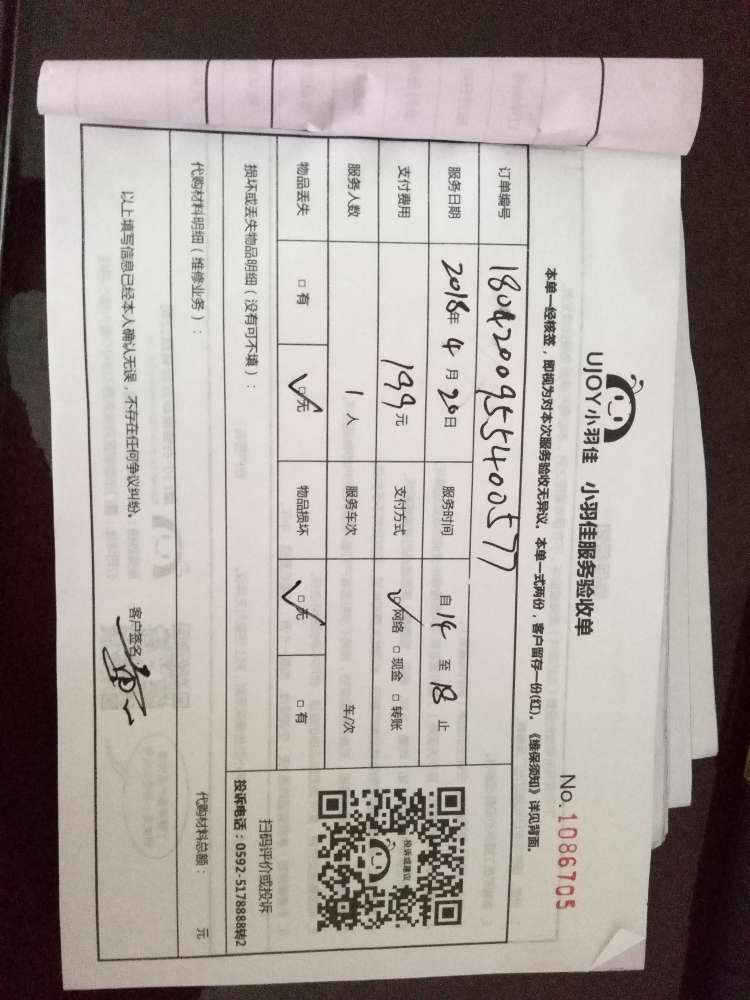 UJOY小羽佳 小羽佳服务验收单
No. 1086705
本单一经核签，即视为对本次服务验收无异议。本单一式两份，客户留存一份(红)。《维保须知》详见背面。
订单编号 1804200955400577
服务日期 2018年 4 月 20日 服务时间 自 14 至 18 止
支付费用 199 元 支付方式 □网络 □现金 □转账
服务人数 1 人 服务车次 车/次
物品丢失 □有 □无 物品损坏 □无 □有
投诉或建议
扫码评价或投诉
投诉电话：0592-5178888转2
损坏或丢失物品明细（没有可不填）：
代购材料明细（维修业务）： 代购材料总额： 元
以上填写信息已经本人确认无误，不存在任何争议纠纷。 客户签名